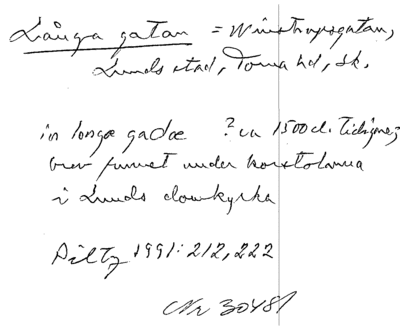 Långa gatan = Winstrupsgatan,
Lunds stad, Torna hd, Sk.
in longæ gadæ ? ca 1500
brev funnet under korstolarna
i Lunds domkyrka
Piltz 1991: 212, 222
Nr 30481